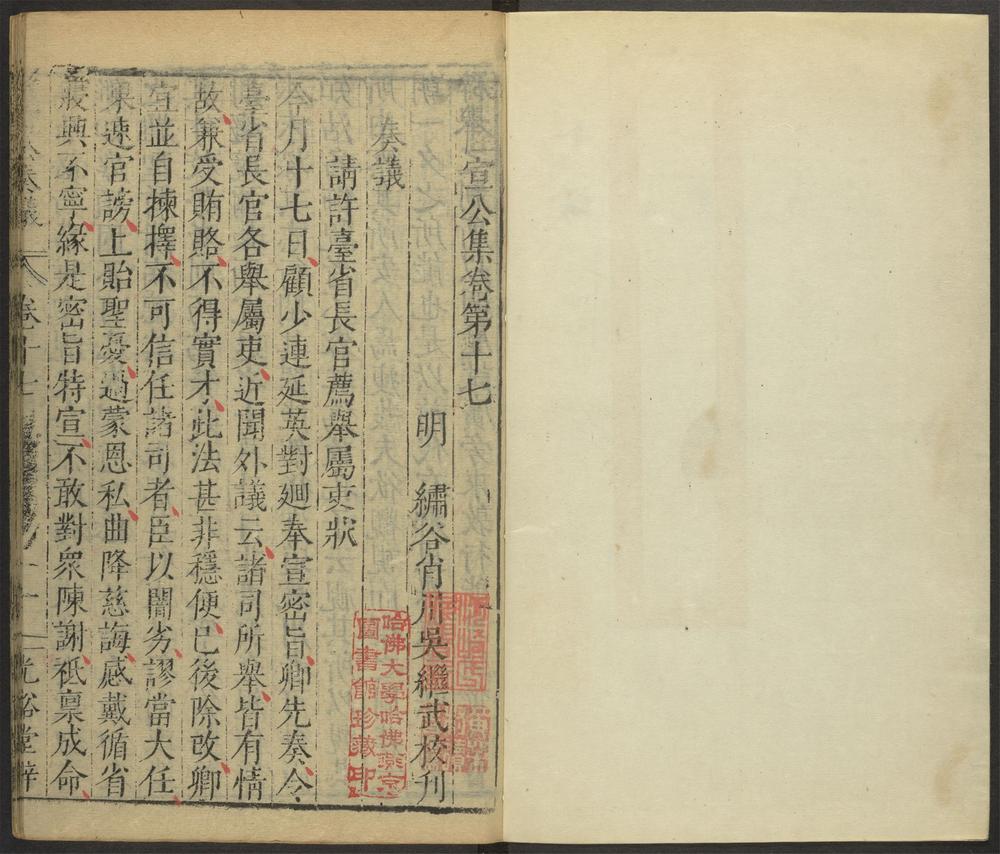 宣公集卷第十七
明 繡谷肖川吳繼武校刊
奏議
請許臺省長官薦舉屬吏狀
今月十七日顧少連延英對廻奉宣密旨卿先奏令
臺省長官各舉屬吏近聞外議云諸司所舉皆有情
故兼受賄賂不得實才此法甚非穩便已後除改卿
宜並自揀擇不可信任諸司者臣以闇劣謬當大任
果速官謗上貽聖憂過蒙恩私曲降慈誨感戴循省
寢興不寧緣是密旨特宣不敢對衆陳謝祗稟成命
奏議
卷十七
光裕堂梓
哈佛大學哈佛燕京
圖書館珍藏印